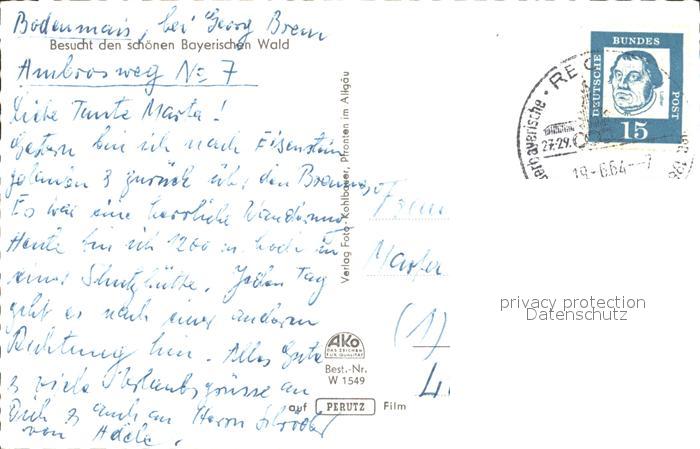 Bodenmais, bei Georg Brem
Besucht den schönen Bayerischen Wald
Ambrosweg No 7
Liebe Tante Marta!
Gestern bin ich nach Eisenstein
zurück über den Brennes
Es war eine herrliche Wanderung
Heute bin ich 1200 m hoch in
einer Schutzhütte. Jeden Tag
geht es nach einer anderen
Richtung hin. Alles Gute
viele Urlaubsgrüsse an
Dich auch an Herrn
von Adele.
Verlag Foto-Kohlbauer, Pfronten im Allgäu
AKO
DAS ZEICHEN
FÜR QUALITÄT
Best.-Nr.
W 1549
auf PERUTZ Film
DEUTSCHE
BUNDES
POST
Luther
15
27.-29.
19.-6.64.--7
(1)
privacy protection
Datenschutz